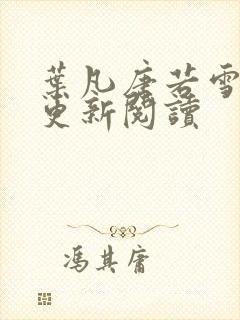 葉凡唐若雪
更新閱讀
馮其庸